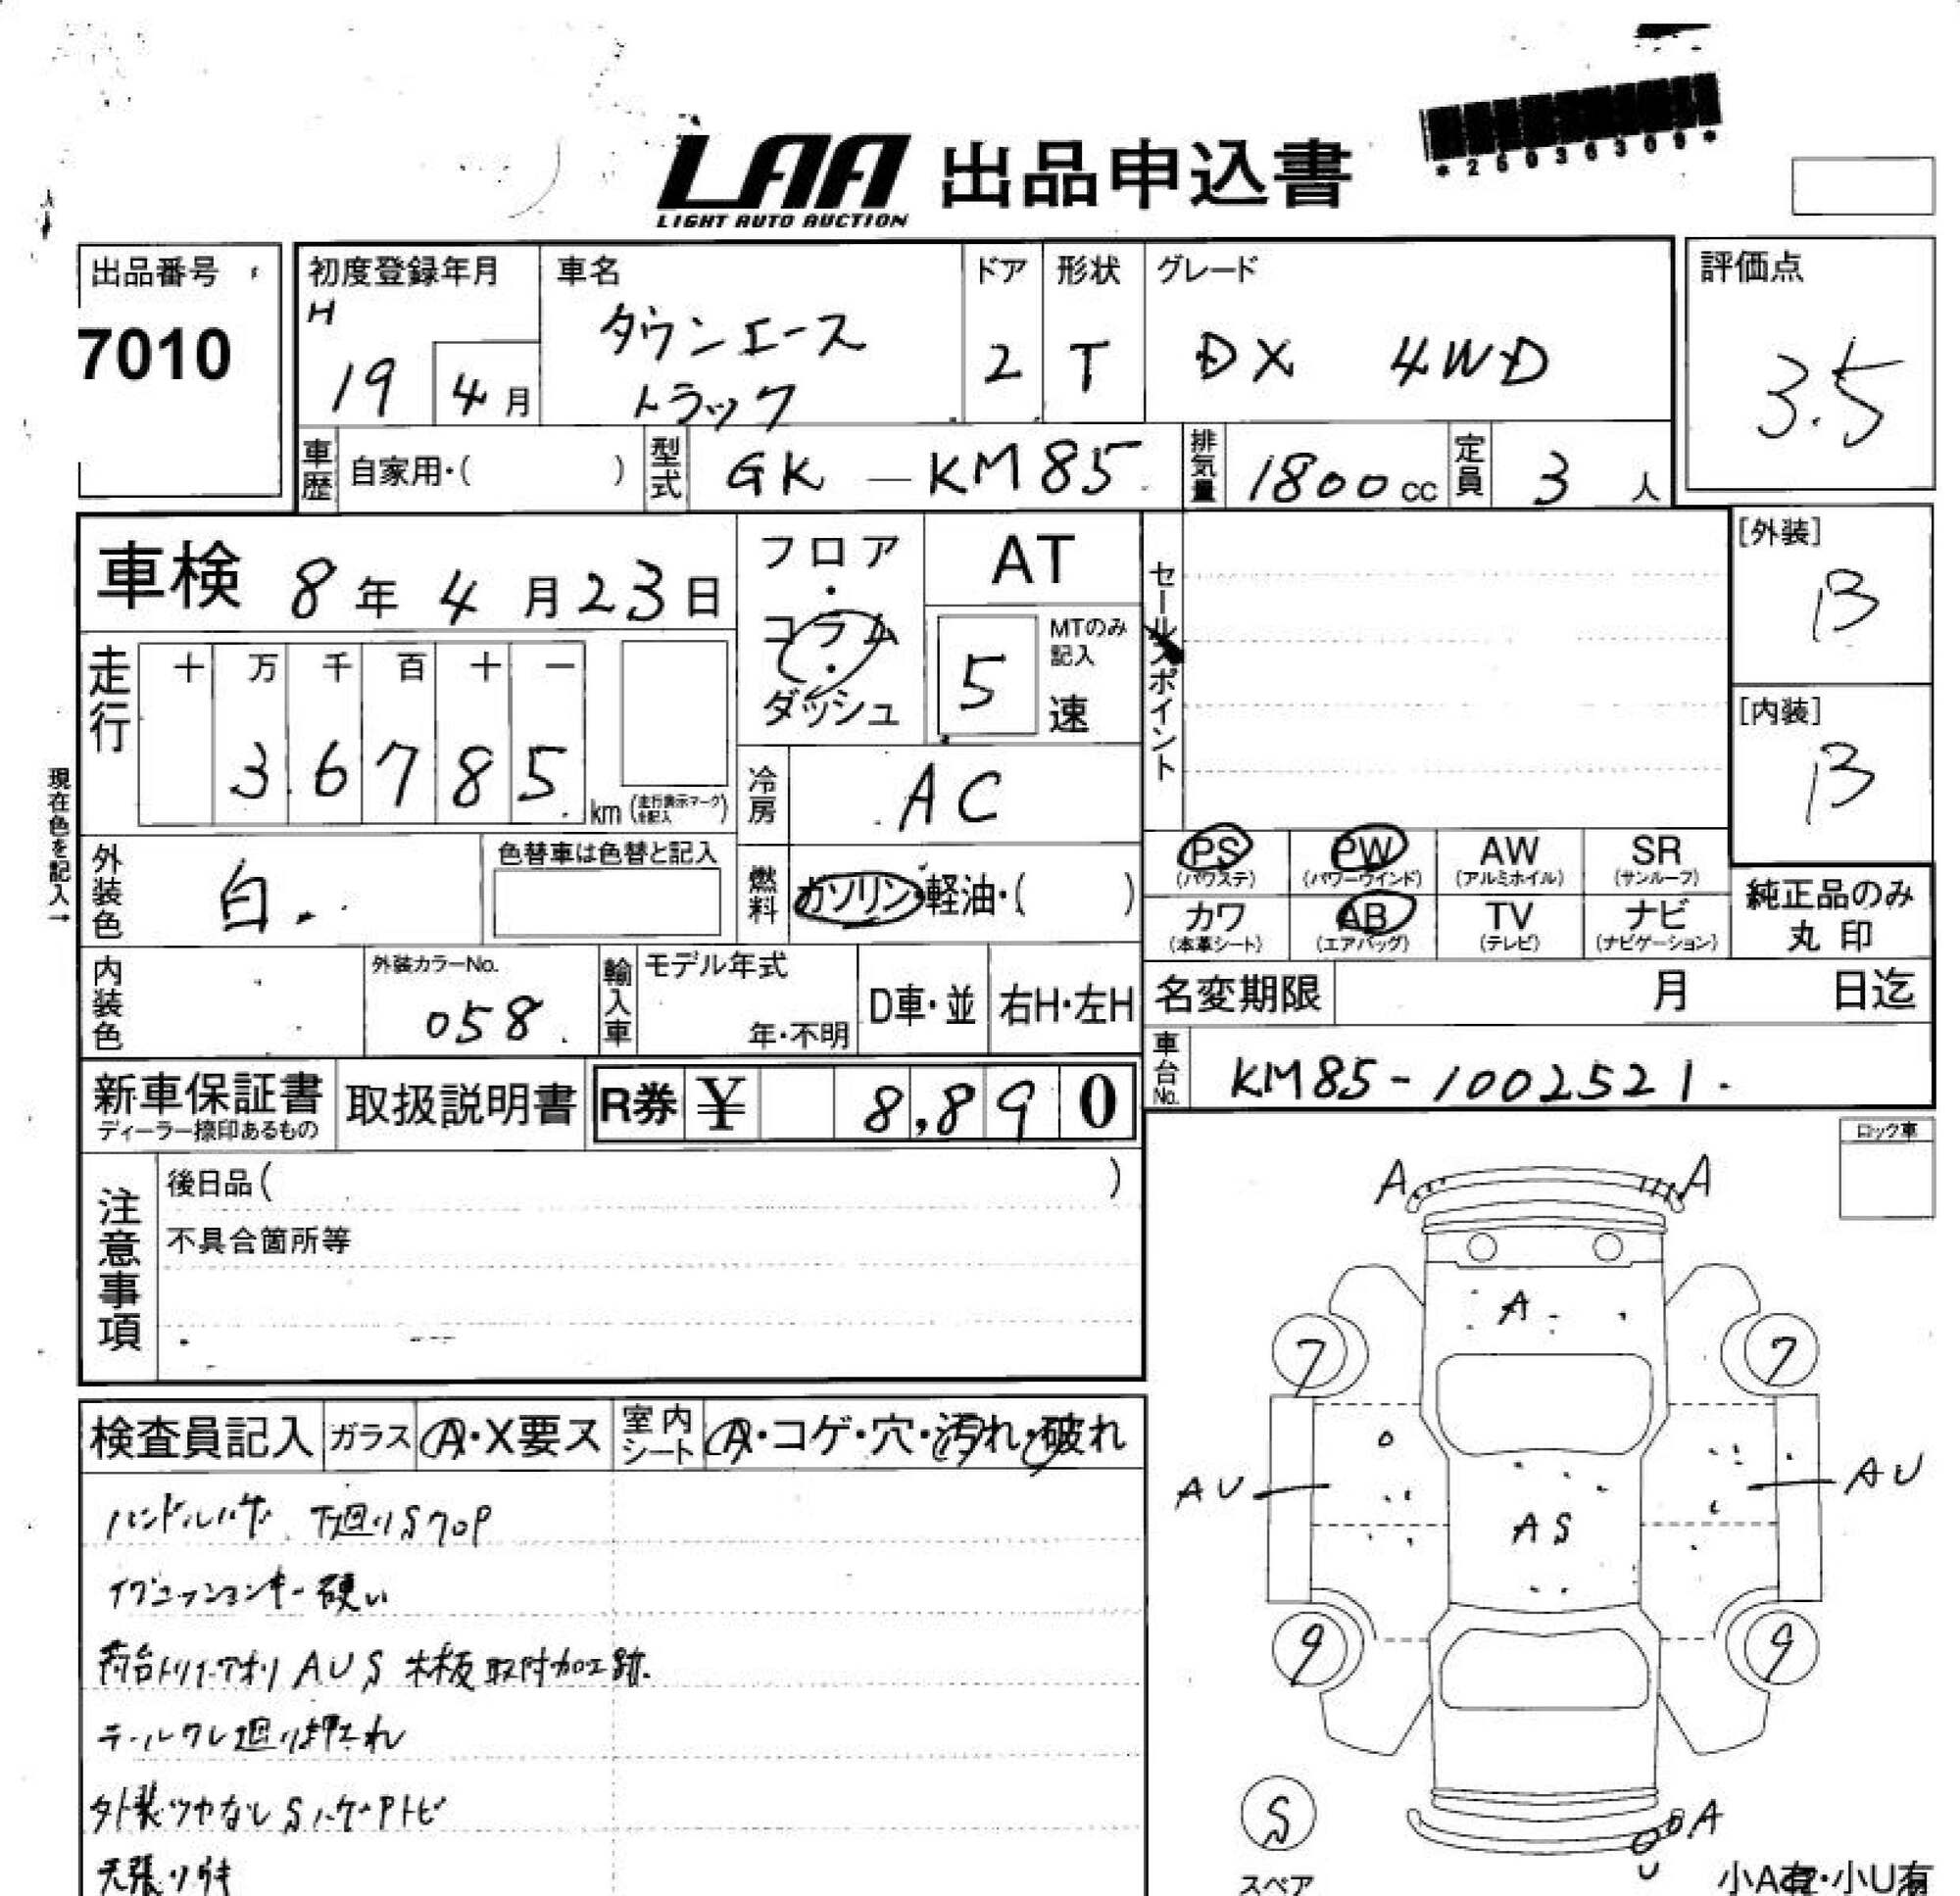 *2603630９*
LAA 出品申込書
LIGHT AUTO AUCTION
出品番号
7010
初度登録年月
H
19 4月
車名
タウンエース
トラック
ドア
2
形状
T
グレード
DX 4WD
評価点
3.5
車歴 自家用・( )
型式 GK-KM85
排気量 1800cc
定員 3人
車検 8年4月23日
フロア・コラム・ダッシュ
AT
5 MTのみ記入 速
セールスポイント
[外装]
B
[内装]
B
走行
十 万 千 百 十 一
3 6 7 8 5 km (走行表示マークを記入)
現在色を記入→
冷房 AC
外装色 白.
色替車は色替と記入
燃料 ガソリン・軽油・( )
PS (パワステ) PW (パワーウインド) AW (アルミホイル) SR (サンルーフ)
カワ (本革シート) AB (エアバッグ) TV (テレビ) ナビ (ナビゲーション)
純正品のみ
丸印
内装色
外装カラーNo.
058
輸入車 モデル年式
年・不明
D車・並 右H・左H
名変期限 月 日迄
車台No. KM85-1002521.
新車保証書
ディーラー捺印あるもの
取扱説明書
R券 ¥ 8,890
注意事項
後日品( )
不具合箇所等
ロック車
A A
A
7 7
AU AU
AS
9 9
S
スペア
A
U
小A有・小U有
検査員記入 ガラス A・X要ス 室内シート A・コゲ・穴・汚れ・破れ
ハンドルハゲ 下廻りS
イグニッションキー硬い
荷台トリイ・アオリ AUS 木板取付加工跡.
テールクレ廻り押され
外装ツヤなしSハゲPトビ
天張りキ